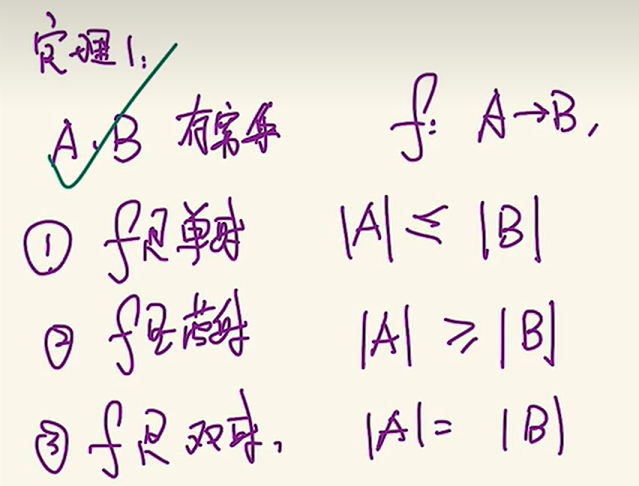 定理1:
A,B 有穷集 f: A→B,
① f是单射 |A| ≤ |B|
② f是满射 |A| ≥ |B|
③ f是双射, |A| = |B|